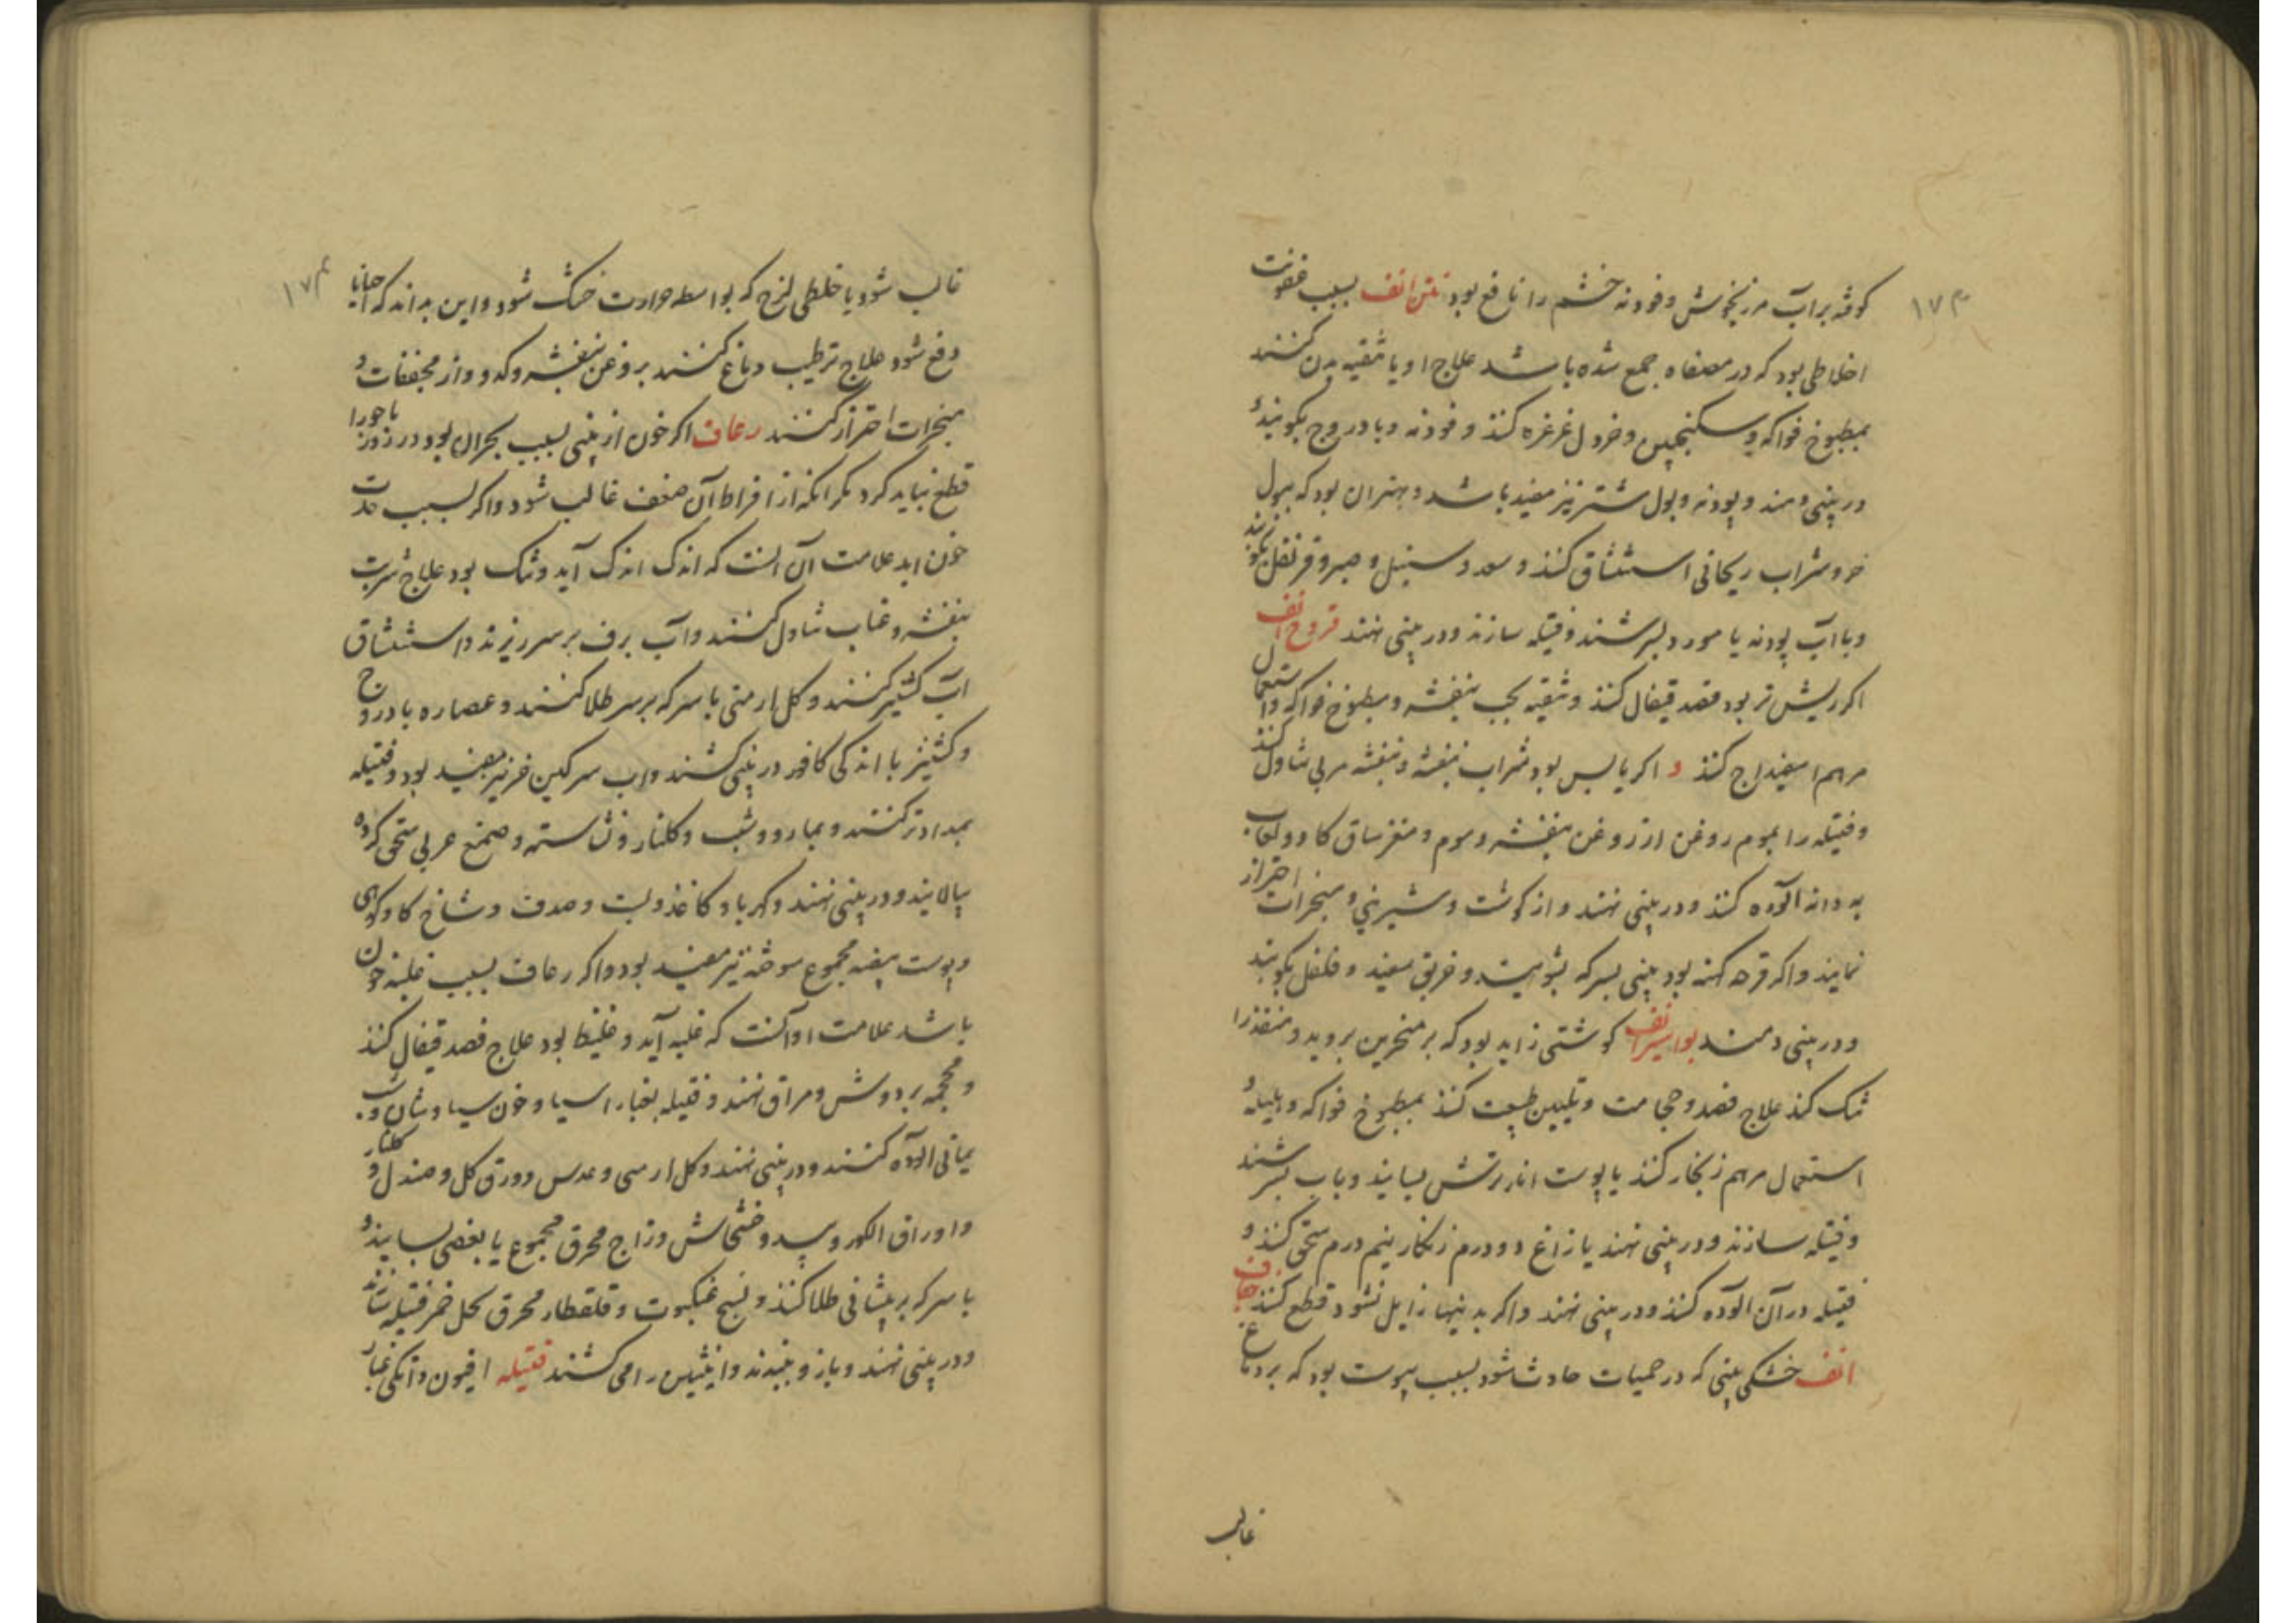 ۱۷۳
کوفته برآب مرزنجوش و فودنه خشم را نافع بود نتن انف بسبب عفونت
اخلاطی بود که در مصفاه جمع شده باشد علاج او یا تنقیه بدن کنند
بمطبوخ فواکه و سکنجبین و خردل غرغره کنند و فودنه و بادروج بکوبند و
در بینی دمند و پودنه و بول شتر نیز مفید باشد و بهتر ان بود که ببول
خر و شراب ریحانی استنشاق کنند و سعد و سنبل و صبر و قرنفل بکوبند
و باآب پودنه یا مورد بسرشند و فتیله سازند و در بینی نهند قروح انف
اکر ریش تر بود فصد قیفال کنند و تنقیه بحب بنفشه و مطبوخ فواکه و استعمال
مرهم اسفیداج کنند و اکر یابس بود شراب بنفشه و بنفشه مربی تناول کنند
و فتیله را بموم روغن از روغن بنفشه و موم و مغز ساق کاو و لعاب
به دانه آلوده کنند و در بینی نهند و از کوشت و شیرینی و مبخرات احتراز
نمایند و اکر قرحه کهنه بود بینی بسرکه بشویند و خربق سفید و فلفل بکوبند
و در بینی دمند بواسیر انف کوشتی زاید بود که بر منخرین بروید و منفذ را
تنک کند علاج فصد و حجامت و تلیین طبیعت کنند بمطبوخ فواکه و هلیله و
استعمال مرهم زنجار کنند یا پوست انار ترش بسایند و باب بسرشند
و فتیله سازند و در بینی نهند یا زاغ دو درم زنکار نیم درم سحق کنند و
فتیله در آن آلوده کنند و در بینی نهند و اکر بدینها زایل نشود قطع کنند جفاف
انف خشکی بینی که در حمیات حادث شود بسبب یبوست بود که بر دماغ
غالب
۱۷۴
غالب شود یا خلطی لزج که بواسطه حرارت خشک شود و این بداند که احیانا
دفع شود علاج ترطیب دماغ کنند بروغن بنفشه و کدو و از مجففات و
مبخرات احتراز کنند رعاف اکر خون از بینی بسبب بحران بود در روز باحورا
قطع نباید کرد مکر انکه از افراط آن ضعف غالب شود و اکر بسبب حدت
خون اید علامت آن انست که اندک اندک آید و تنک بود علاج شربت
بنفشه و عناب تناول کنند و آب برف بر سر ریزند و استنشاق
آب کشنیز کنند و کل ارمنی با سرکه بر سر طلا کنند و عصاره بادروج
و کشنیز با اندکی کافور در بینی کشند و اب سرکین خر نیز مفید بود و فتیله
بمداد تر کنند و بمازو و شب و کلنار و نشاسته و صمغ عربی سحق کرده
بیالایند و در بینی نهند و کهربا و کاغذ و بست و صدف و شاخ کاو کوهی
و پوست بیضه مجموع سوخته نیز مفید بود و اکر رعاف بسبب غلبه خون
باشد علامت او آنست که غلبه آید و غلیظ بود علاج فصد قیفال کنند
و محجمه بر دوش و مراق نهند و فتیله بغبار اسیا و خون سیاوشان و شب
یمانی آلوده کنند و در بینی نهند و کل ارمنی و عدس و ورق کل و صندل و کلنار
و اوراق الکهر و بید و خشخاش و زاج محرق مجموع یا بعضی بسایند و
با سرکه بر پیشانی طلا کنند و نسج عنکبوت و قلقطار محرق بکحل خمر فتیله سازند
و در بینی نهند و بازو ببندند و انثیین را می کشند فتیله افیون دانکی غبار